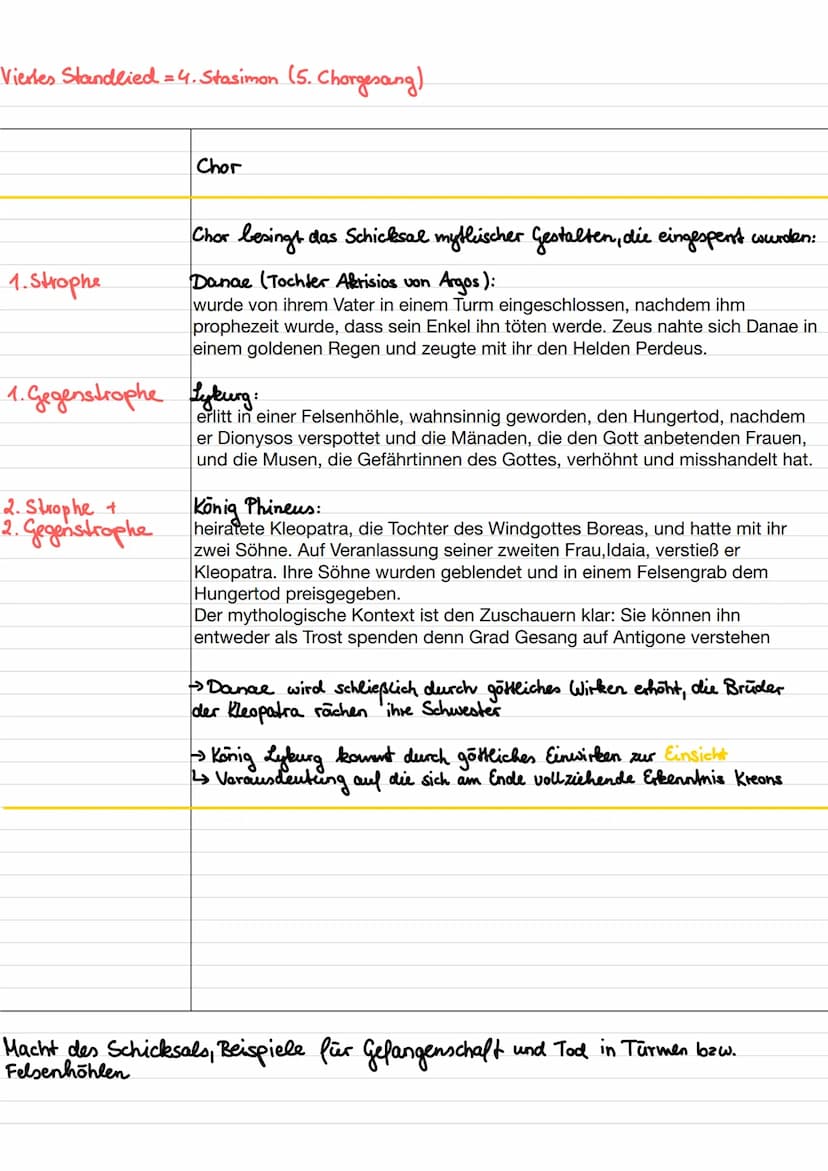 Viertes Standlied = 4. Stasimon (5. Chorgesang)
Chor
Chor besingt das Schicksal mythischer Gestalten, die eingesperrt wurden:
1. Strophe
Danae (Tochter Akrisios von Argos):
wurde von ihrem Vater in einem Turm eingeschlossen, nachdem ihm
prophezeit wurde, dass sein Enkel ihn töten werde. Zeus nahte sich Danae in
einem goldenen Regen und zeugte mit ihr den Helden Perdeus.
1. Gegenstrophe
Lykurg:
erlitt in einer Felsenhöhle, wahnsinnig geworden, den Hungertod, nachdem
er Dionysos verspottet und die Mänaden, die den Gott anbetenden Frauen,
und die Musen, die Gefährtinnen des Gottes, verhöhnt und misshandelt hat.
2. Strophe +
2. Gegenstrophe
König Phineus:
heiratete Kleopatra, die Tochter des Windgottes Boreas, und hatte mit ihr
zwei Söhne. Auf Veranlassung seiner zweiten Frau,Idaia, verstieß er
Kleopatra. Ihre Söhne wurden geblendet und in einem Felsengrab dem
Hungertod preisgegeben.
Der mythologische Kontext ist den Zuschauern klar: Sie können ihn
entweder als Trost spenden denn Grad Gesang auf Antigone verstehen
→ Danae wird schließlich durch göttliches Wirken erhöht, die Brüder
der Kleopatra rächen ihre Schwester
→ König Lykurg kommt durch göttliches Einwirken zur Einsicht
↳ Vorausdeutung auf die sich am Ende vollziehende Erkenntnis Kreons
Macht des Schicksals, Beispiele für Gefangenschaft und Tod in Türmen bzw.
Felsenhöhlen